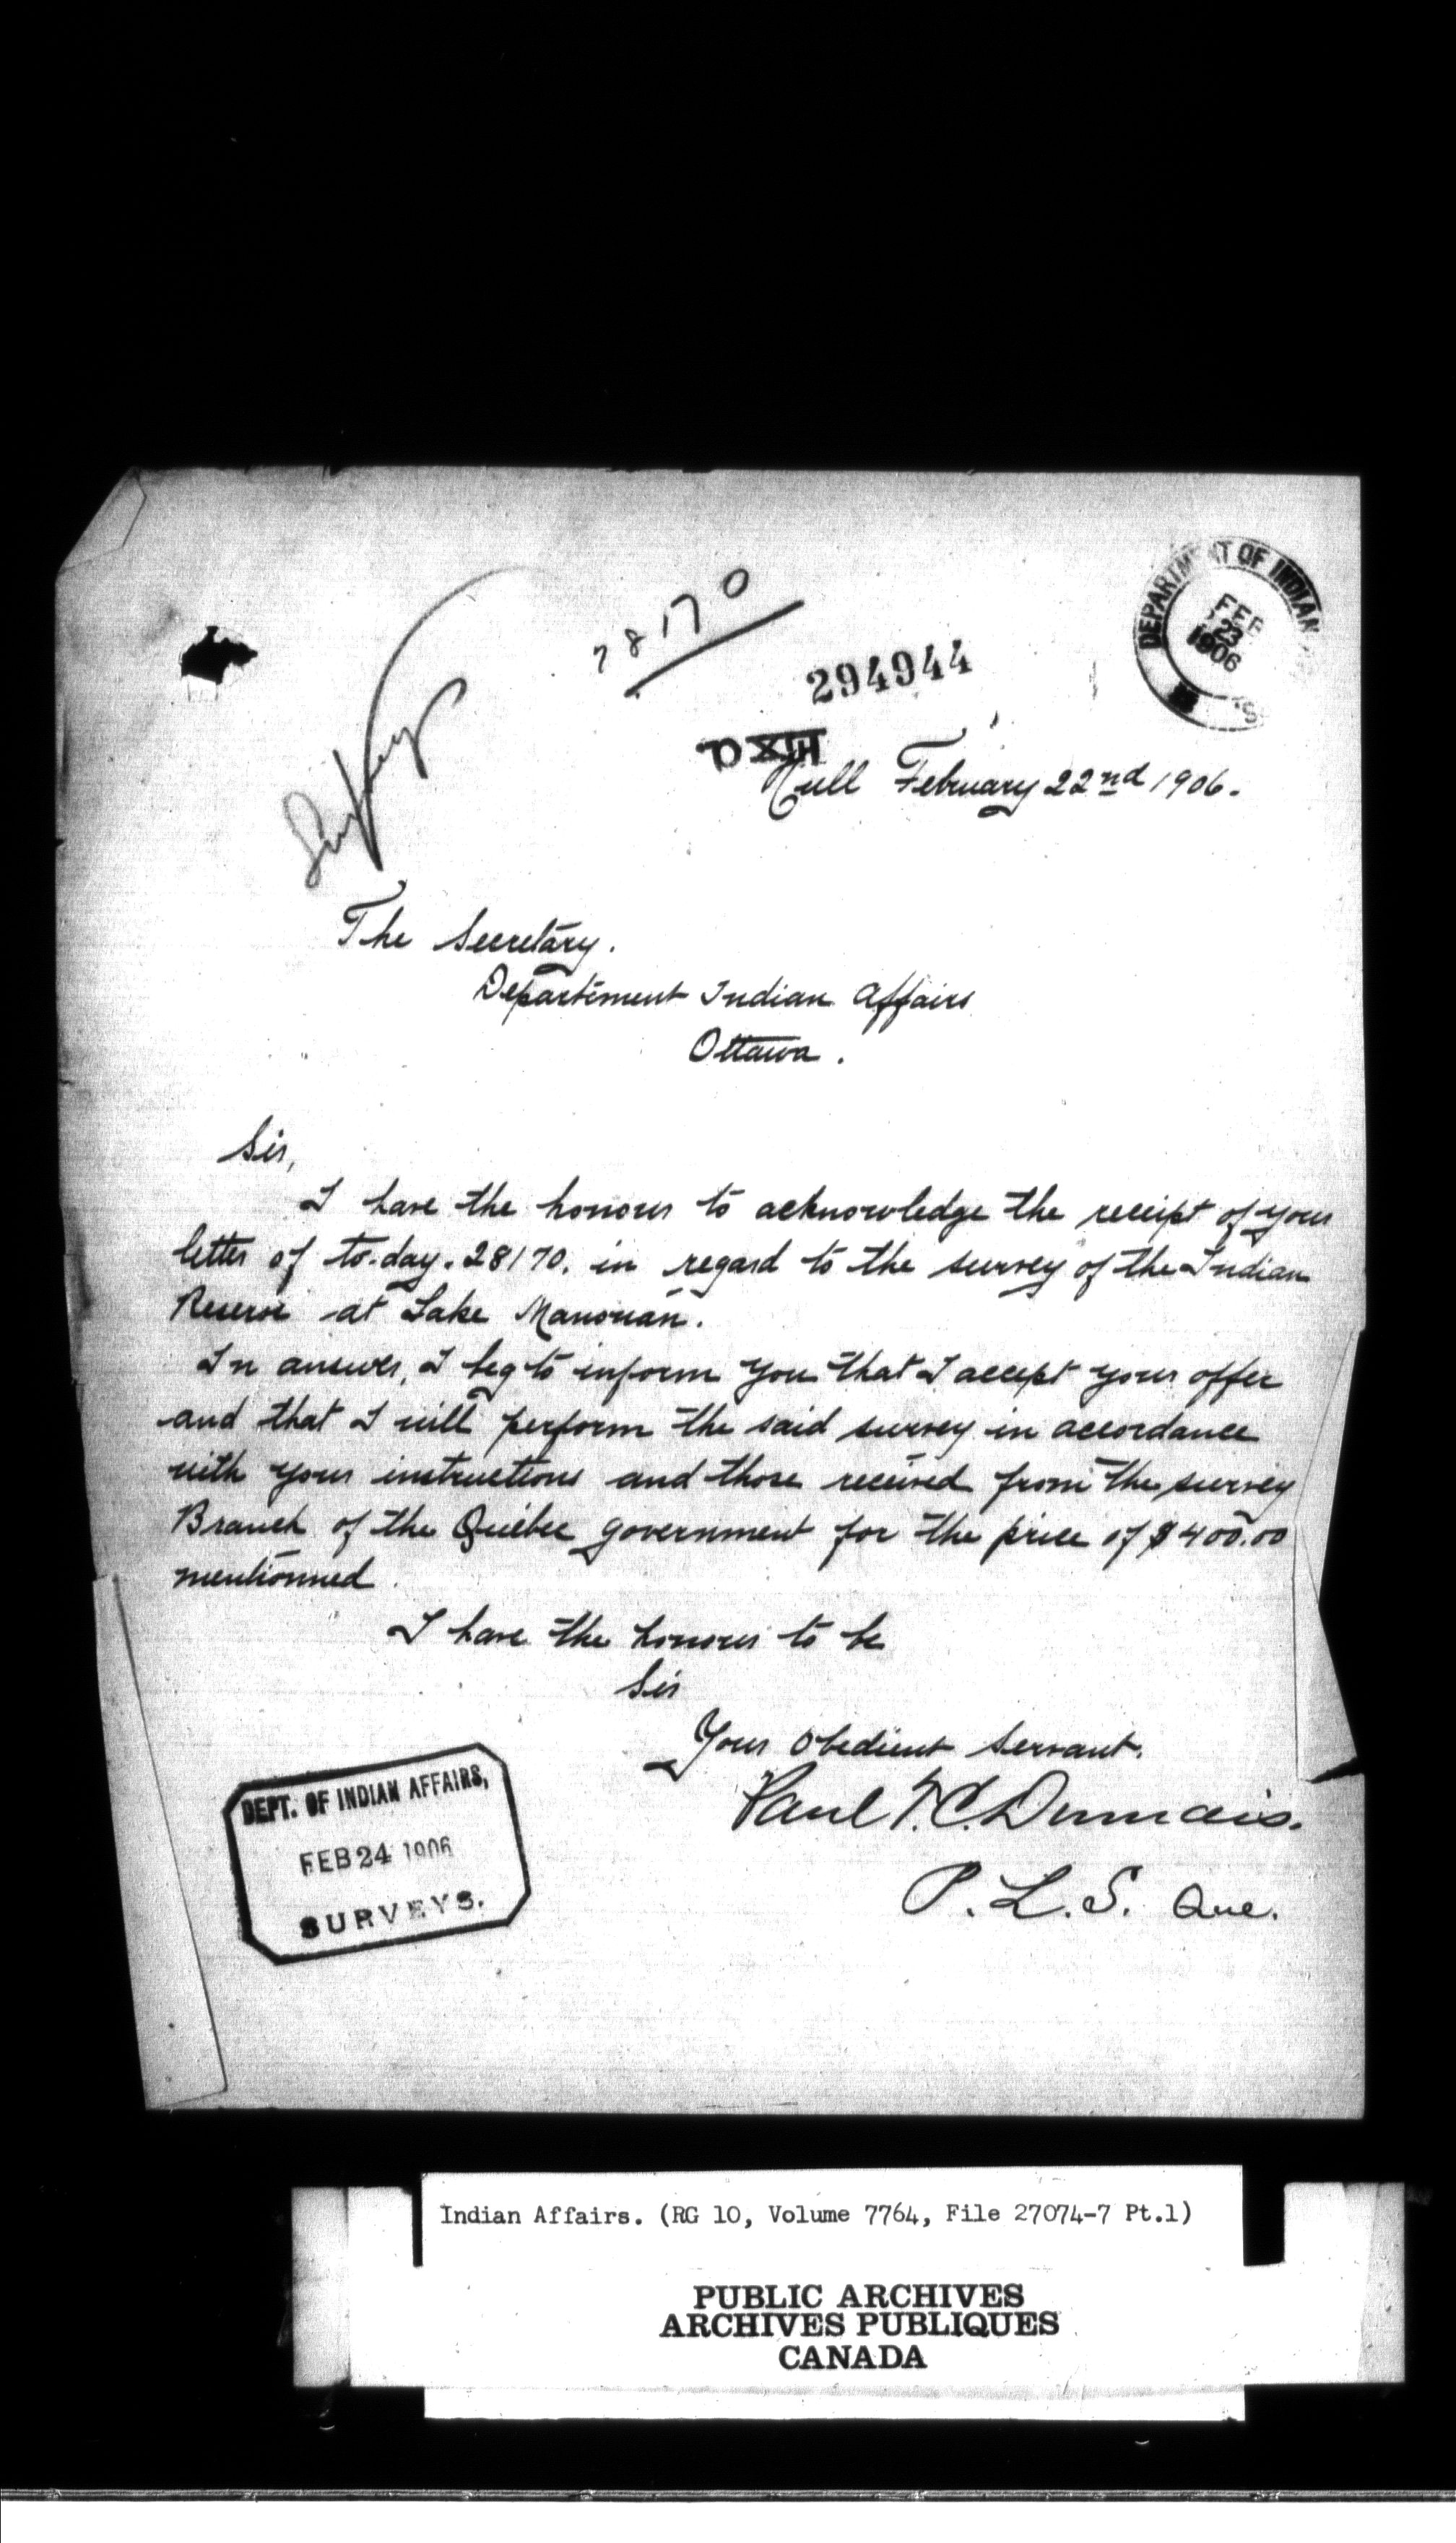 28170
294944
DEPARTMENT OF INDIAN
FEB
23
1906
Hull February 22nd 1906.
The Secretary.
Departement Indian Affairs
Ottawa.
Sir,
I have the honour to acknowledge the receipt of your
letter of to-day. 28170. in regard to the survey of the Indian
Reserve at Lake Manouan.
In answer, I beg to inform you that I accept your offer
and that I will perform the said survey in accordance
with your instructions and those received from the survey
Branch of the Quebec government for the price of $400.00
mentionned.
I have the honour to be
Sir
Your Obedient Servant.
Paul T.C. Dumais.
P.L.S. Que.
DEPT. OF INDIAN AFFAIRS,
FEB 24 1906
SURVEYS.
Indian Affairs. (RG 10, Volume 7764, File 27074-7 Pt.1)
PUBLIC ARCHIVES
ARCHIVES PUBLIQUES
CANADA